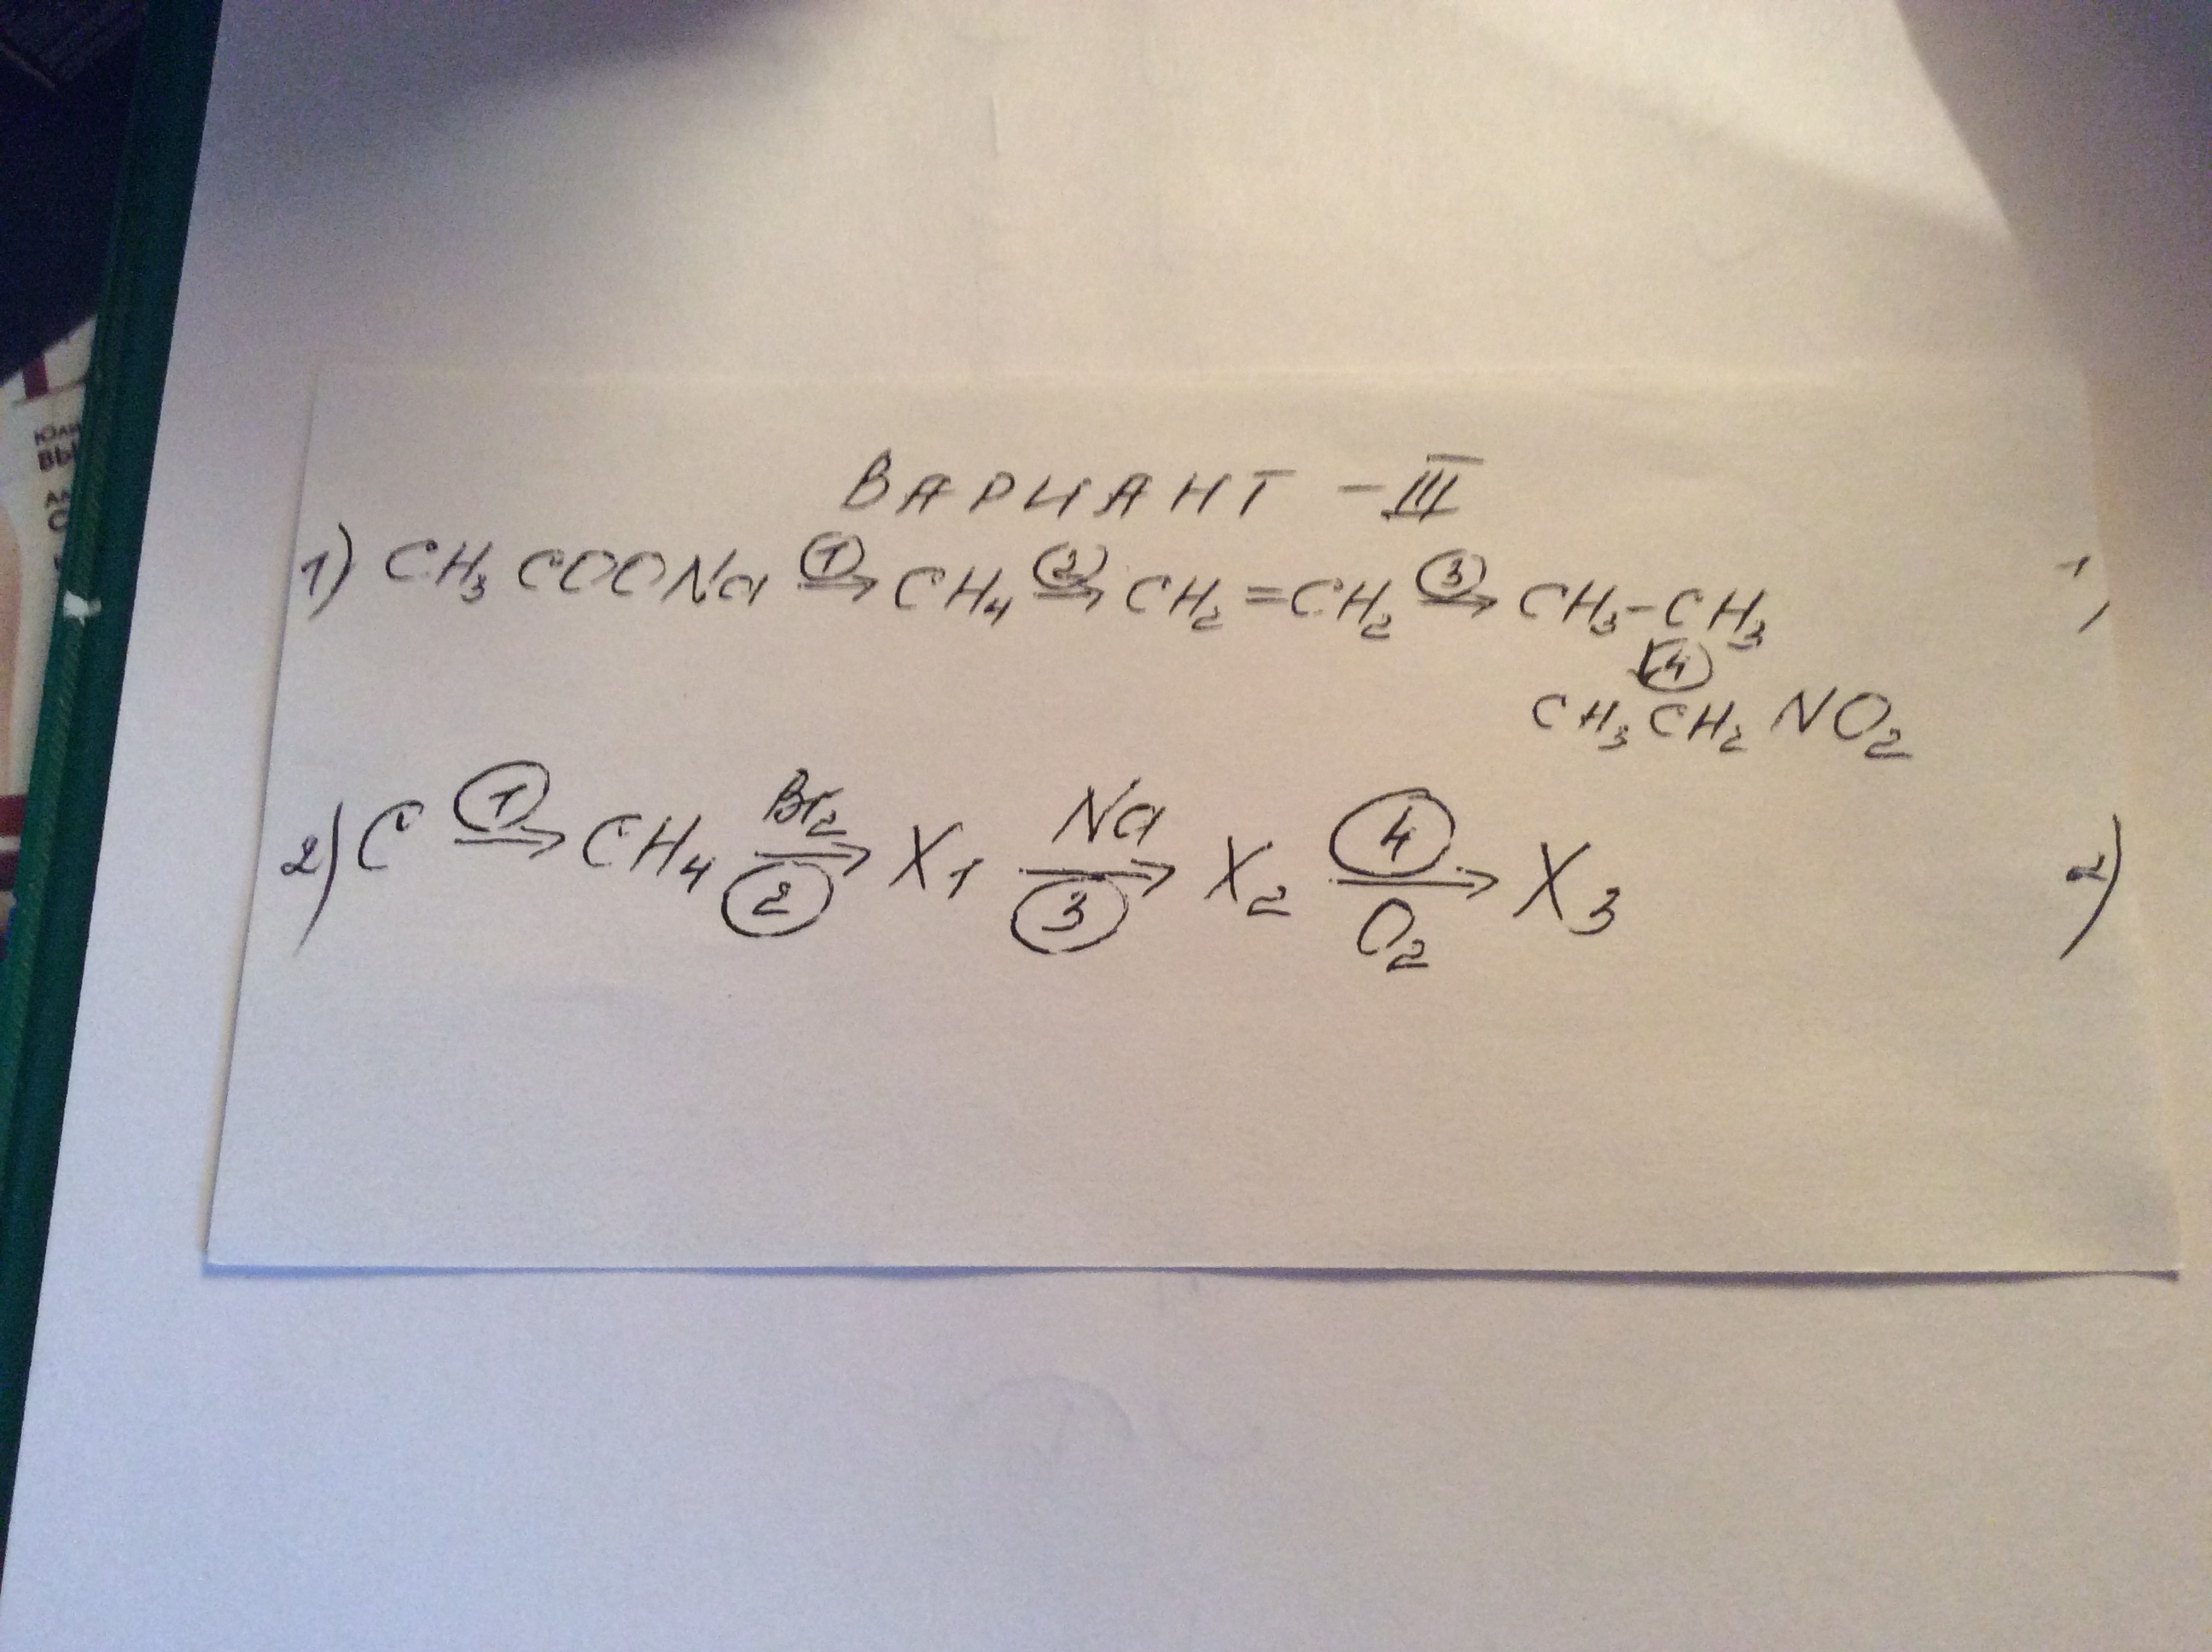 ВАРИАНТ – III
1) CH₃COONa ①→ CH₄ ②→ CH₂=CH₂ ③→ CH₃–CH₃
↓④
CH₃CH₂NO₂
2) C ①→ CH₄ Br₂→② X₁ Na→③ X₂ ④→O₂ X₃
2)